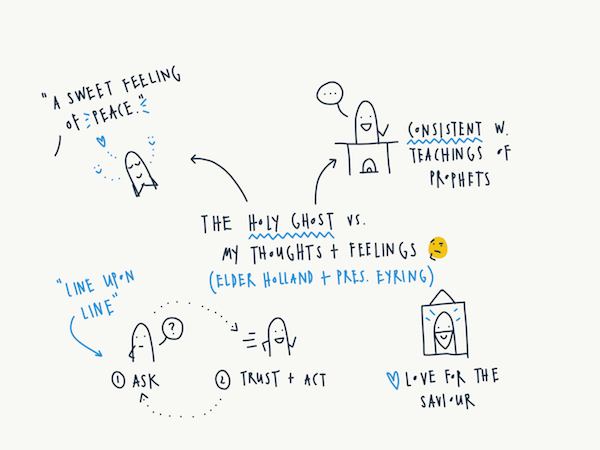 "A SWEET FEELING
OF PEACE."
...
CONSISTENT W.
TEACHINGS OF
PROPHETS
THE HOLY GHOST VS.
MY THOUGHTS + FEELINGS
(ELDER HOLLAND + PRES. EYRING)
"LINE UPON
LINE"
?
① ASK
② TRUST + ACT
LOVE FOR THE
SAVIOUR